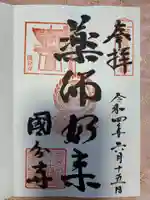 奉拝
令和四年六月十五日
薬師如来
國分寺